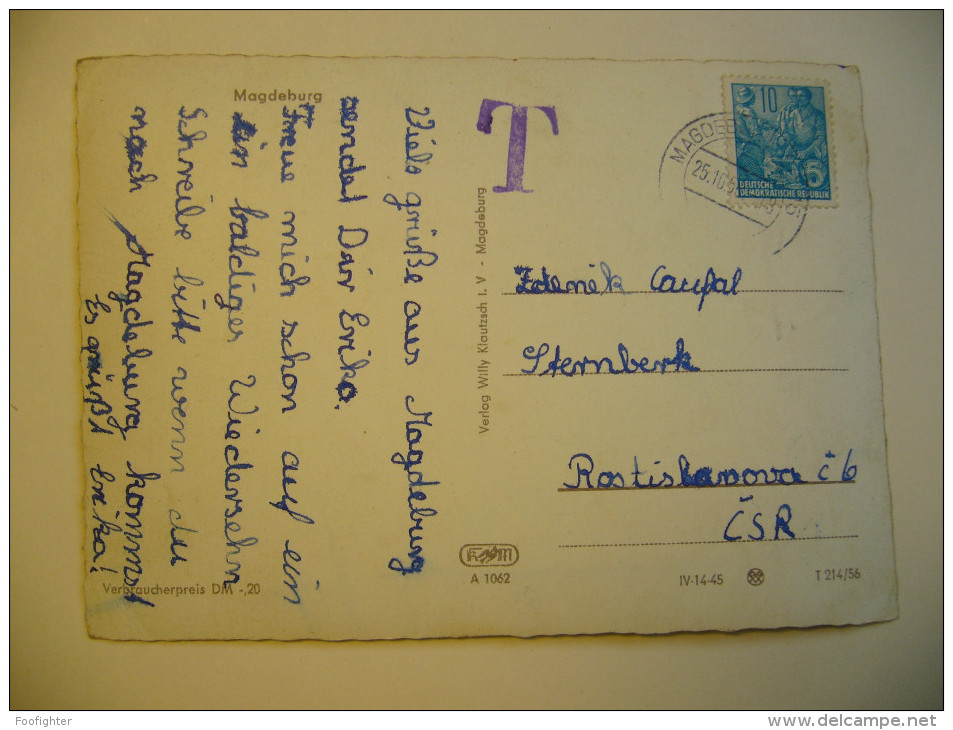 Magdeburg
Viele grüße aus Magdeburg
sendet Dir Erika.
Freue mich schon auf ein
baldiges Wiedersehn
Schreibe bitte wenn du
nach Magdeburg kommst
Es grüßt Erika!
Verbraucherpreis DM -,20
T
Verlag Willy Klautzsch I. V - Magdeburg
K M
A 1062
10
5
DEUTSCHE
DEMOKRATISCHE REPUBLIK
25.10.5
Zdeněk
Sternberk
č 6
ČSR
IV-14-45
T 214/56
Foofighter
delcampe.net